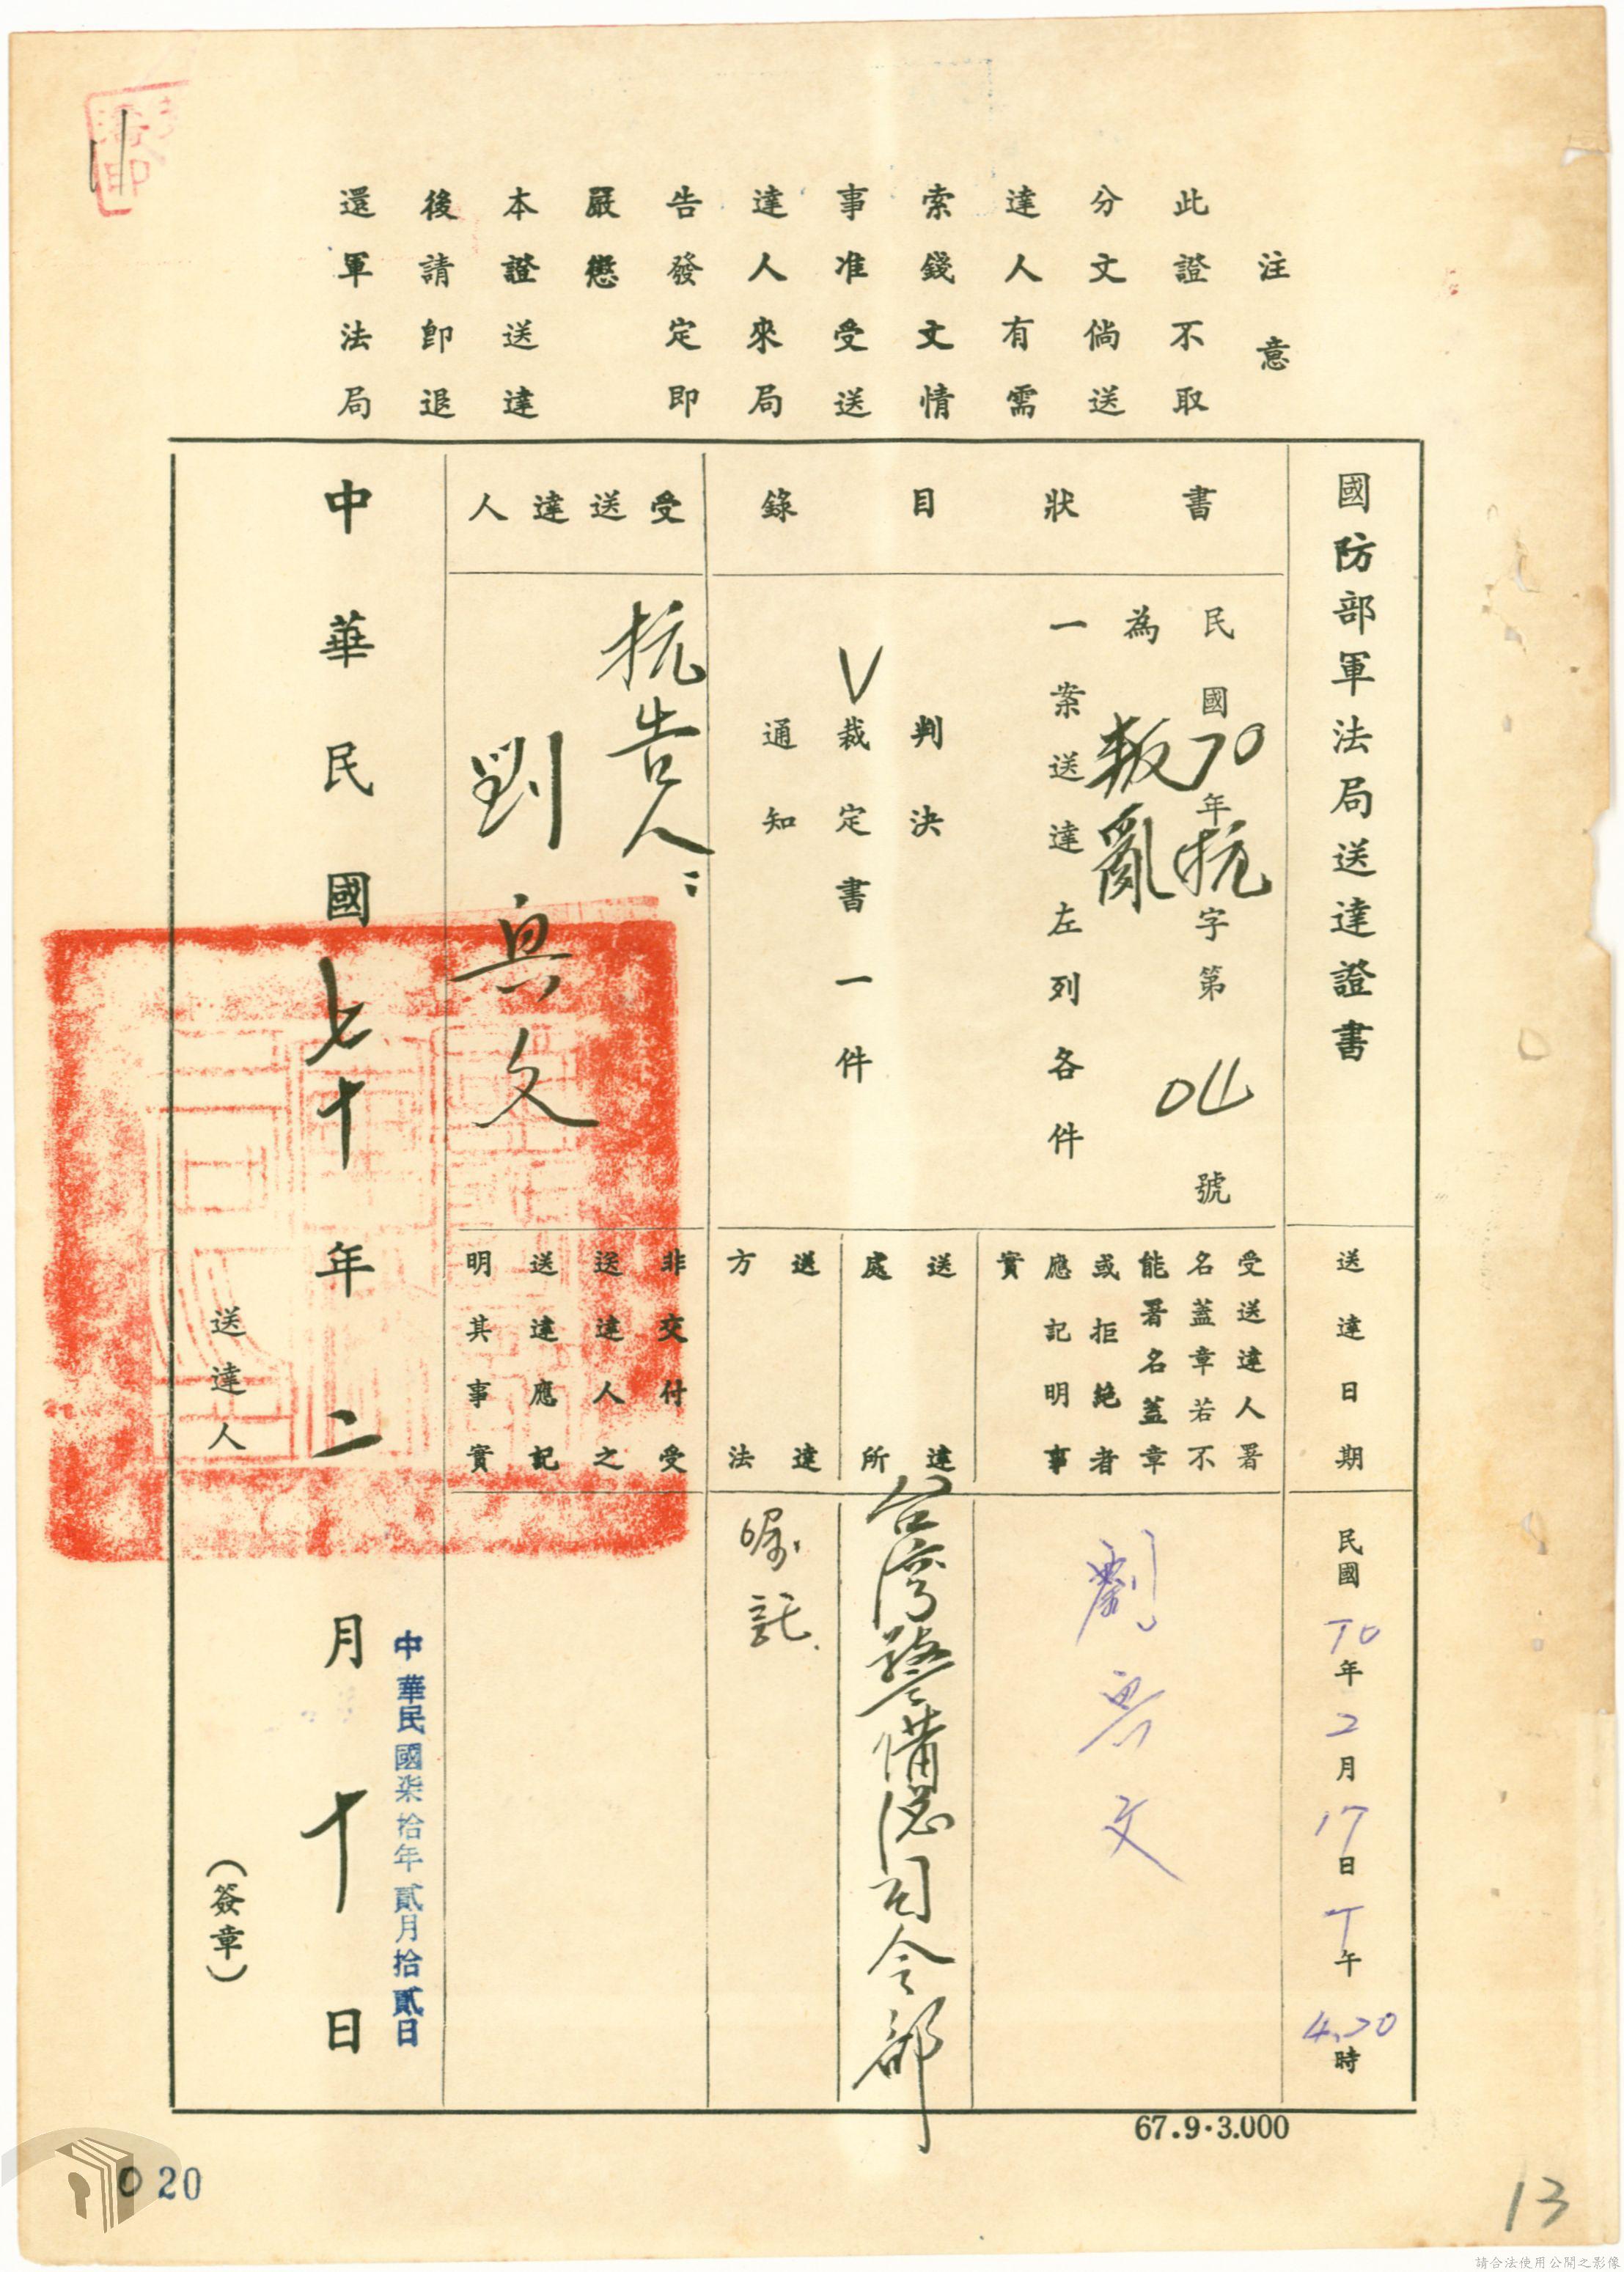 注意
此證不取
分文倘送
達人有需
索錢文情
事准受送
達人來局
告發定即
嚴懲
本證送達
後請卽退
還軍法局
國防部軍法局送達證書
送達日期
民國70年2月17日下午 時
書狀目錄
民國70年抗字第 號
為叛亂
一案送達左列各件
判決
V裁定書一件
通知
受送達人署
名蓋章若不
能署名蓋章
或拒絕者
應記明事
實
劉 文
送達處所
台灣警備總司令部
送達方法
囑託
受送達人
抗告人：
劉 文
非交付受
送達人之
送達應記
明其事實
中華民國七十年二月十日
中華民國柒拾年貳月拾貳日
送達人
(簽章)
67.9.3.000
020
13
請合法使用公開之影像